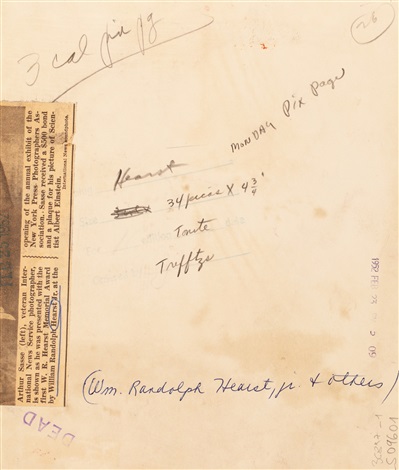 3 cal pix pg
26
MONDAY Pix Page
Hearst
34 picas X 4 3/4"
Tonite
Trefftzs
Arthur Sasse (left), veteran Inter-
national News Service photographer,
is shown as he was presented with the
first W. R. Hearst Memorial Award
by William Randolph Hearst Jr. at the
opening of the annual exhibit of the
New York Press Photographers As-
sociation. Sasse received a $500 bond
and a plaque for his picture of Scien-
tist Albert Einstein.
International News Soundphoto.
(Wm. Randolph Hearst, jr. & others)
DEAD
1952 FEB
S09601